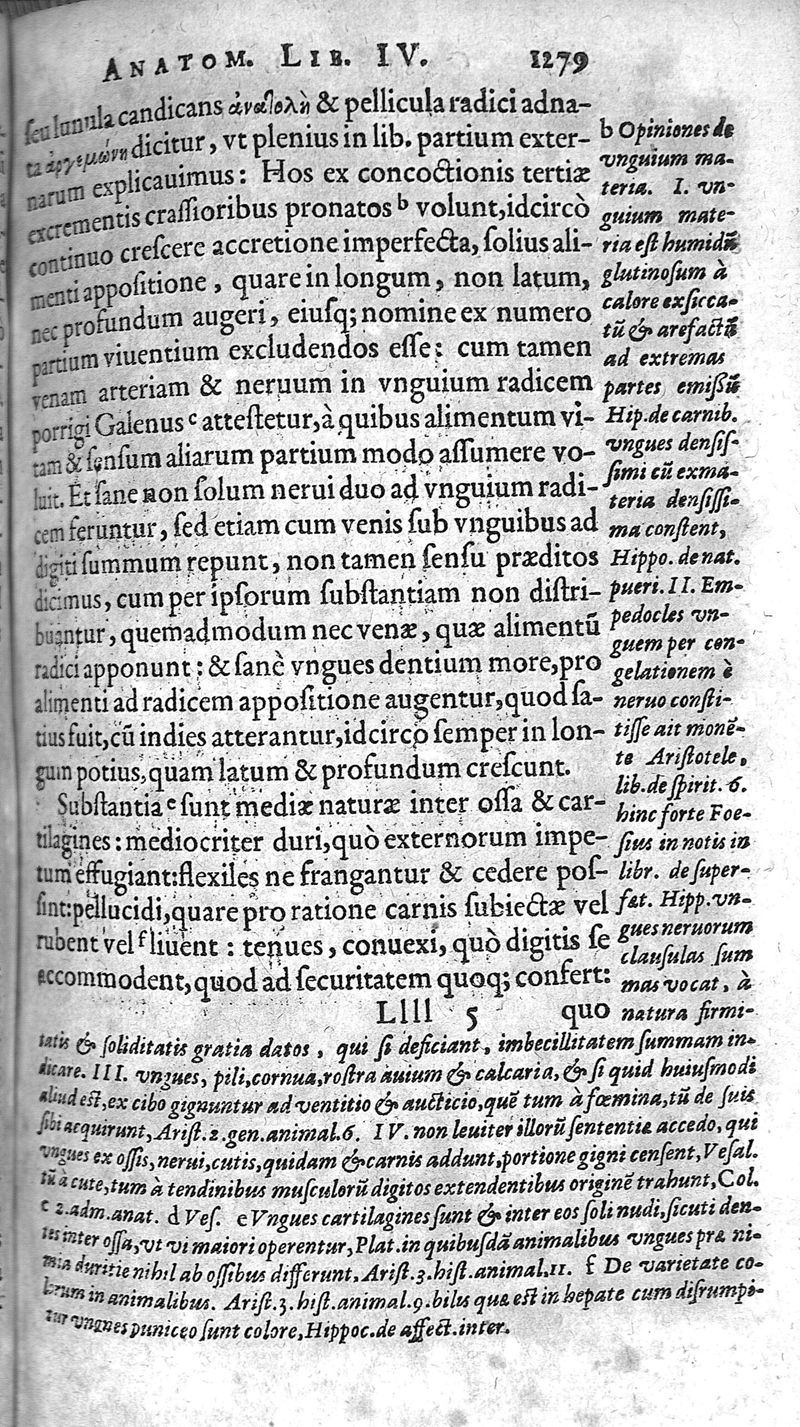 ANATOM. LIB. IV. 1279
ſeu lunula candicans ἀνατολὴ & pellicula radici adna-
ta dicitur, vt plenius in lib. partium exter-
narum explicauimus: Hos ex concoctionis tertiæ
excrementis craſſioribus pronatos ᵇ volunt, idcircò
continuo creſcere accretione imperfecta, ſolius ali-
menti appoſitione, quare in longum, non latum,
nec profundum augeri, eiuſq; nomine ex numero
partium viuentium excludendos eſſe: cum tamen
venam arteriam & neruum in vnguium radicem
porrigi Galenus ᶜ atteſtetur, à quibus alimentum vi-
tam & ſenſum aliarum partium modo aſſumere vo-
luit. Et ſane non ſolum nerui duo ad vnguium radi-
cem feruntur, ſed etiam cum venis ſub vnguibus ad
digiti ſummum repunt, non tamen ſenſu præditos
dicimus, cum per ipſorum ſubſtantiam non diſtri-
buantur, quemadmodum nec venæ, quæ alimentũ
radici apponunt: & ſanè vngues dentium more, pro
alimenti ad radicem appoſitione augentur, quod ſa-
tius fuit, cũ indies atterantur, idcirco ſemper in lon-
gum potius, quam latum & profundum creſcunt.
Subſtantia ᵉ ſunt mediæ naturæ inter oſſa & car-
tilagines: mediocriter duri, quò externorum impe-
tum effugiant: flexiles ne frangantur & cedere poſ-
ſint: pellucidi, quare pro ratione carnis ſubiectæ vel
rubent vel ᶠ liuent: tenues, conuexi, quò digitis ſe
accommodent, quod ad ſecuritatem quoq; confert:
Llll 5 quo
b Opiniones de
vnguium ma-
teria. I. vn-
guium mate-
ria eſt humidũ
glutinoſum à
calore exſicca-
tũ & arefactũ
ad extremas
partes emiſſũ
Hip. de carnib.
vngues denſiſ-
ſimi cũ ex ma-
teria denſiſſi-
ma conſtent,
Hippo. de nat.
pueri. II. Em-
pedocles vn-
guem per con-
gelationem è
neruo conſti-
tiſſe ait monẽ-
te Ariſtotele,
lib. de ſpirit. 6.
hinc forte Foe-
ſius in notis in
libr. de ſuper-
fæt. Hipp. vn-
gues neruorum
clauſulas ſum
mas vocat, à
natura firmi-
tatis & ſoliditatis gratia datos, qui ſi deficiant, imbecillitatem ſummam in-
dicare. III. vngues, pili, cornua, roſtra auium & calcaria, & ſi quid huiuſmodi
aliud eſt, ex cibo gignuntur ad ventitio & aucticio, quẽ tum à fœmina, tũ de ſuis
ſibi acquirunt, Ariſt. 2. gen. animal. 6. IV. non leuiter illorũ ſententiæ accedo, qui
vngues ex oſſis, nerui, cutis, quidam & carnis addunt, portione gigni cenſent, Veſal.
tũ à cute, tum à tendinibus muſculorũ digitos extendentibus originẽ trahunt, Col.
c 2. adm. anat. d Veſ. e Vngues cartilagines ſunt & inter eos ſoli nudi, ſicuti den-
tes inter oſſa, vt vi maiori operentur, Plat. in quibuſdã animalibus vngues præ ni-
mia duritie nihil ab oſſibus differunt, Ariſt. 3. hiſt. animal. 11. f De varietate co-
lorum in animalibus. Ariſt. 3. hiſt. animal. 9. bilus quæ eſt in hepate cum diſrumpi-
tur vngues puniceo ſunt colore, Hippoc. de affect. inter.